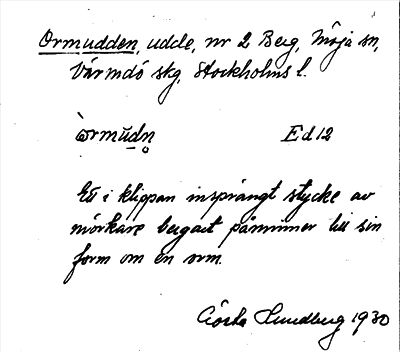 Ormudden, udde, nr 2 Berg, Möja sn,
Värmdö skg, Stockholms l.
òrmùdn̥ Ed 12
Ett i klippan insprängt stycke av
mörkare bergart påminner till sin
form om en orm.
Gösta Lundberg 1930